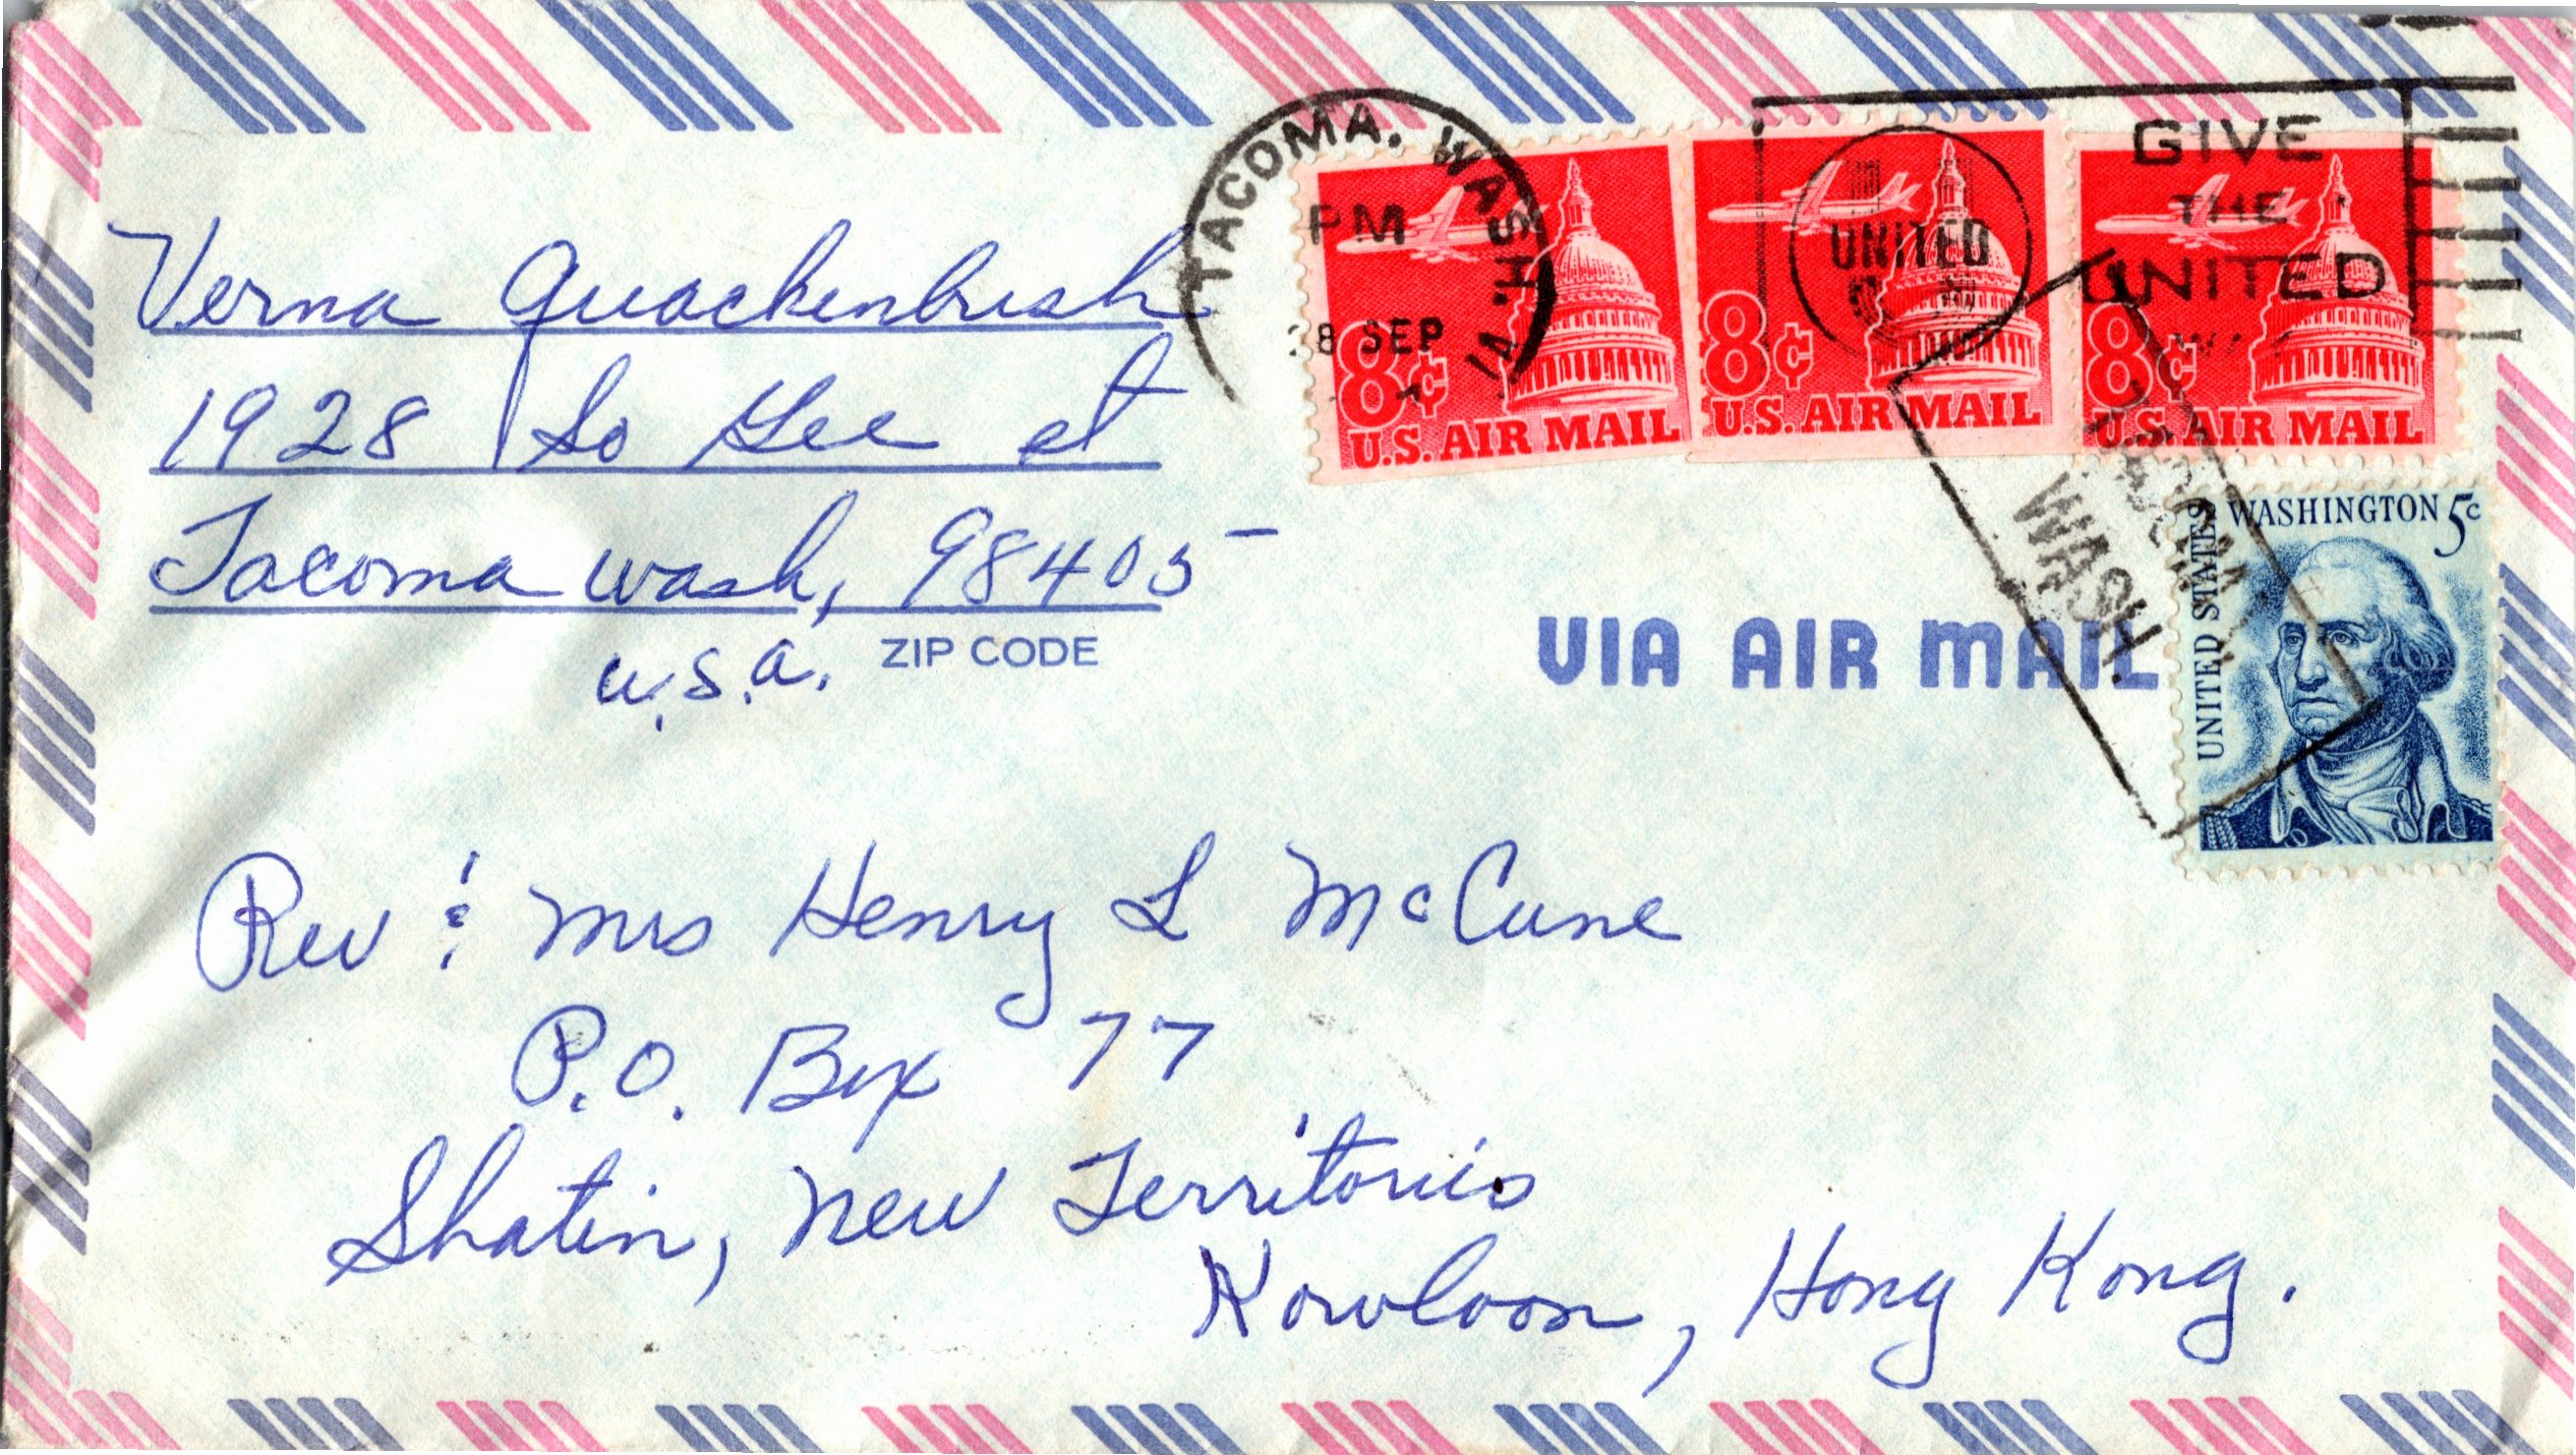 Verna Quackenbush
1928 So Gee st
Tacoma Wash, 98405
U.S.A. ZIP CODE
TACOMA, WASH.
PM
28 SEP
UNITED
GIVE
THE
UNITED
WAY
8¢
U.S. AIR MAIL
8¢
U.S. AIR MAIL
8¢
U.S. AIR MAIL
TACOMA
WASH.
WASHINGTON 5c
UNITED STATES
VIA AIR MAIL
Rev & Mrs Henry L McCune
P.O. Box 77
Shatin, New Territories
Kowloon, Hong Kong.